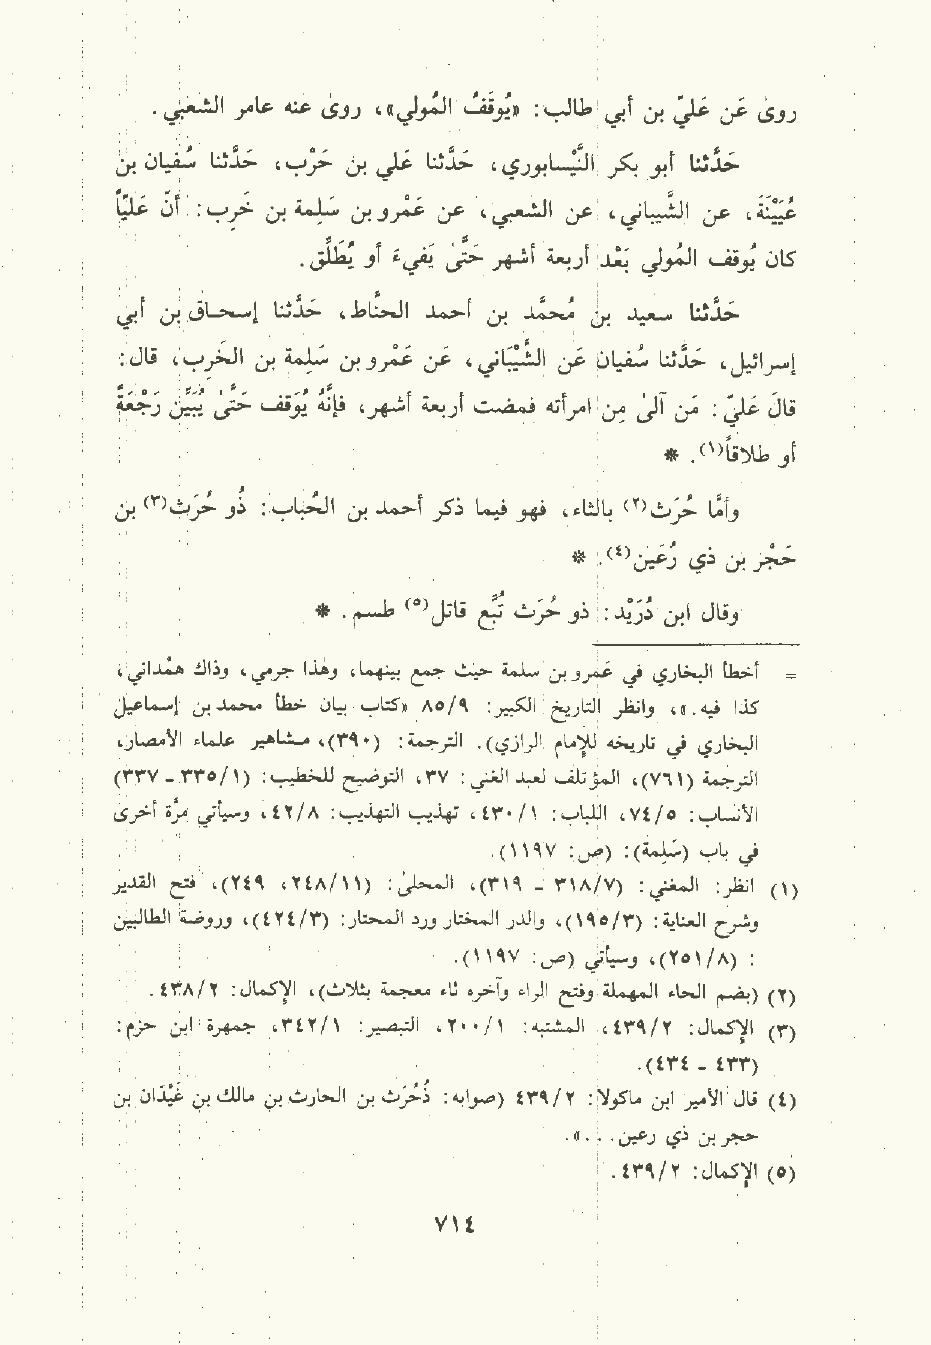 روىٰ عَن عَليّ بن أبي طالب: «يُوقَفُ المُولي»، وروىٰ عنه عامر الشعبي.
حَدَّثنا أبو بكر النَّيْسابوري، حَدَّثنا علي بن حَرْب، حَدَّثنا سُفيان بن
عُيَيْنَة، عن الشَّيباني، عن الشعبي، عن عَمْرو بن سَلِمة بن خَرِب: أنّ عَليّاً
كان يُوقف المُولي بَعْد أربعة أشهر حَتَّىٰ يَفيء أو يُطَلِّق.
حَدَّثنا سعيد بن مُحَمَّد بن أحمد الحنَّاط، حَدَّثنا إسحاق بن أبي
إسرائيل، حَدَّثنا سُفيان عَن الشَّيْبَاني، عَن عَمْرو بن سَلِمة بن الخَرِب، قال:
قالَ عَليّ: مَن آلىٰ مِن امرأته فمضت أربعة أشهر، فإنَّهُ يُوَقف حَتَّىٰ يُبَيِّن رَجْعَةً
أو طلاقاً(١). *
وأمَّا حُرَث(٢) بالثاء، فهو فيما ذكر أحمد بن الحُباب: ذُو حُرَث(٣) بن
حَجْر بن ذي رُعَين(٤). *
وقال ابن دُرَيْد: ذو حُرَث تُبَّع قاتل(٥) طسم. *
= أخطأ البخاري في عَمرو بن سلمة حيث جمع بينهما، وهٰذا جرمي، وذاك همْداني،
كذا فيه.»، وانظر التاريخ الكبير: ٨٥/٩ «كتاب بيان خطأ محمد بن إسماعيل
البخاري في تاريخه للإمام الرازي). الترجمة: (٣٩٠)، مشاهير علماء الأمصار،
الترجمة (٧٦١)، المؤتلف لعبد الغني: ٣٧، التوضيح للخطيب: (٣٣٥/١ - ٣٣٧)
الأنساب: ٧٤/٥، اللباب: ٤٣٠/١، تهذيب التهذيب: ٤٢/٨، وسيأتي مرّة أخرى
في باب (سَلِمة): (ص: ١١٩٧).
(١) انظر: المغني: (٣١٨/٧ - ٣١٩)، المحلىٰ: (٢٤٨/١١، ٢٤٩)، فتح القدير
وشرح العناية: (١٩٥/٣)، والدر المختار ورد المحتار: (٤٢٤/٣)، وروضة الطالبين
: (٢٥١/٨)، وسيأتي (ص: ١١٩٧).
(٢) (بضم الحاء المهملة وفتح الراء وآخره ثاء معجمة بثلاث)، الإكمال: ٤٣٨/٢.
(٣) الإكمال: ٤٣٩/٢، المشتبه: ٢٠٠/١، التبصير: ٣٤٢/١، جمهرة ابن حزم:
(٤٣٣ - ٤٣٤).
(٤) قال الأمير ابن ماكولا: ٤٣٩/٢ (صوابه: ذُحُرَث بن الحارث بن مالك بن غَيْدَان بن
حجر بن ذي رعين...».
(٥) الإكمال: ٤٣٩/٢.
٧١٤